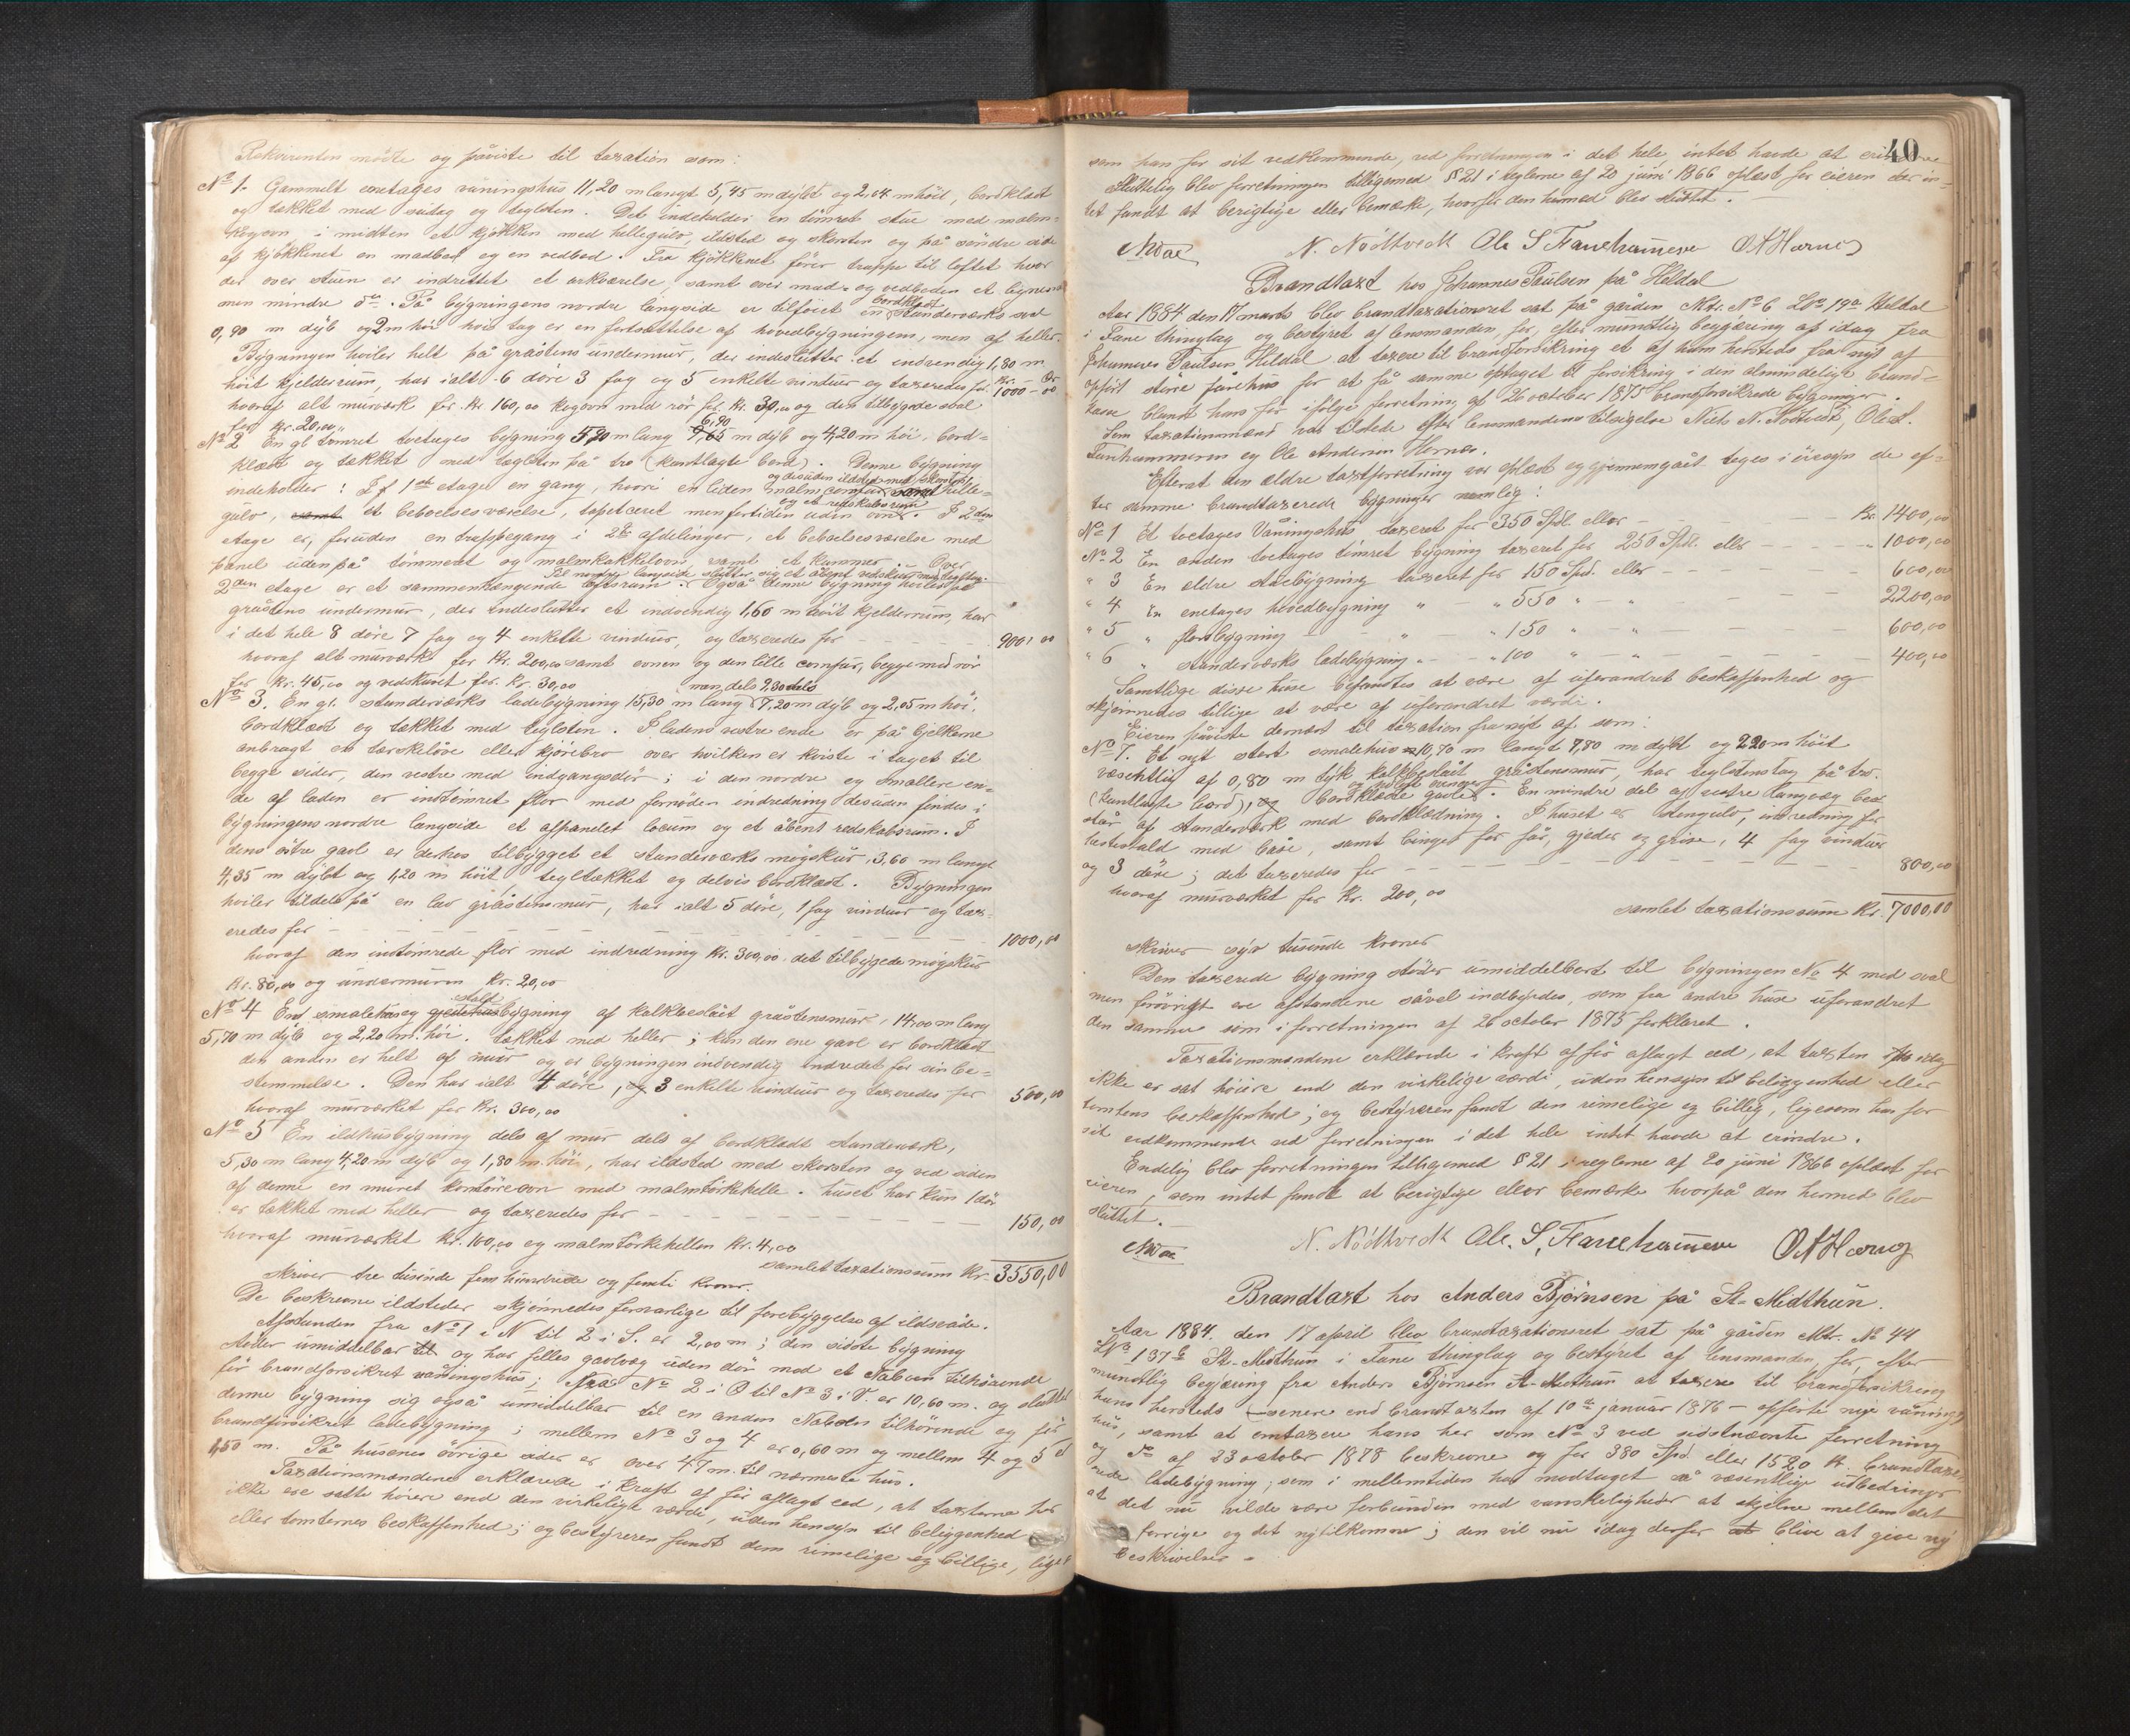 Rekvirenten mødte og påviste til taxation som:
No 1. Gammelt enetages våningshus 11,20 m langt 5,45 m dybt og 2,04 m høit, bordklædt
og tækket med sutag og teglsten. Det indeholder en tømret stue med malm-
kogovn, i midten et kjøkken med hellegulv, ildsted og skorsten og på søndre side
af kjøkkenet en madbod og en vedbod. Fra kjøkkenet fører trappe til loftet hvor
der over stuen er indrettet et arkværelse, samt over mad- og vedboden et lignende
men mindre do. På bygningens nordre langside er tilføiet en bordklædt standerværks sval
0,90 m dyb og 2 m høi hvis tag er en fortsættelse af hovedbygningens, men af heller.
Bygningen hviler helt på gråstens undermur, der indeslutter et indvendig 1,80 m
høit kjelderrum, har ialt 6 døre 3 fag og 5 enkelte vinduer og taxeredes for Kr. 1000 - Ør. 00
hvoraf alt murværk for Kr 160,00 kogovn med rør for Kr. 30,00 og den tilbygde sval
for Kr. 20,00.
No 2 En gl tømret toetages bygning 5,20 m lang 6,90 m dyb og 4,20 m høi, bord-
klædt og tækket med teglsten på tro (kantlagte bord). Denne bygning
indeholder: I 1ste etage en gang, hvori en liden malm comfur og desuden ildsted med skorsten helle-
gulv, samt et beboelsesværelse, tapetceret men for tiden uden ovn og et redskabsrum. I 2den
etage er, foruden en trappegang i 2de afdelinger, et beboelsesværelse med
panel uden på tømmeret og malmkakkelovn samt et kammer. Over
2den etage er et sammenhængende loftsrum. Til nordre langside slutter sig et åbent vedskur med teglstag. Også denne bygning hviler på
gråstens undermur, der indeslutter et indvendig 1,60 m høit kjelderrum, har
i det hele 8 døre 7 fag og 4 enkelte vinduer, og taxeredes for - - - - 900,00
hvoraf alt murværk for Kr. 200,00 samt ovnen og den lille comfur, begge med rør
for Kr. 45,00 og vedskuret for Kr. 30,00
No 3. En gl. standerværks ladebygning 15,30 m lang 7,20 m men dels 9,30 dels dyb og 2,05 m høi,
bordklædt og tækket med teglsten. I ladens vestre ende er på bjelkerne
anbragt en tærskeløve eller kjørebro over hvilken er kviste i taget til
begge sider, den vestre med indgangsdør; i den nordre og smallere en-
de af laden er indtømret flor med fornøden indredning desuden findes i
bygningens nordre langside et afpanelet locum og et åbent redskabsrum. I
dens østre gavl er derhos tilbygget et standerværks møgskur, 3,60 m langt
4,35 m dybt og 1,20 m høit tegltækket og delvis bordklædt. Bygningen
hviler tildels på en lav gråstensmur, har ialt 5 døre, 1 fag vinduer og tax-
eredes for - - - - - - - 1000,00
hvoraf den indtømrede flor med indredning Kr. 300,00. det tilbygede møgskur
Kr. 80,00 og undermuren Kr. 20,00
No 4 En smalehus og stald bygning af kalkbeslåt gråstensmur, 14,00 m lang
5,70 m dyb og 2,20 m. høi. tækket med heller; kun den ene gavl er bordklædt
den anden er helt af mur og er bygningen indvendig indredet for sin be-
stemmelse. Den har ialt 4 døre, og 3 enkelte vinduer og taxeredes for 500,00
hvoraf murværket for Kr. 300,00
No 5 En ildhusbygning dels af mur dels af bordklædt standerværk,
5,30 m lang 4,20 m dyb og 1,80 m. høi, har ildsted med skorsten og ved siden
af denne en muret korntørreovn med malmtørkehelle. huset har kun 1 dør
er tækket med heller og taxeredes for - - - - - 150,00
hvoraf murværket Kr. 100,00 og malmtørkehellen Kr. 4,00
samlet taxationssum Kr. 3550,00
skriver tre tusinde femhundrede og femti kroner.
De beskrevne ildsteder skjønnedes forsvarlige til forebyggelse af ildsvåde.
Afstanden fra No 1 i N til 2 i S. er 2,00 m; den sidste bygning
støder umiddelbar til og har fælles gavlvæg uden dør med et Naboen tilhørende
før brandforsikret våningshus; fra No 2 i Ø til No 3 i V. er 10,60 m. og slutter
denne bygning sig også umiddelbar til en anden Naboen tilhørende og før
brandforsikret ladebygning; mellem No 3 og 4 er 0,60 m og mellem 4 og 5 er
1,50 m. På husenes øvrige sider er over 47 m. til nærmeste hus.
Taxationsmændene erklærede i kraft af før aflagt eed, at taxterne her
ikke ere satte høiere end den virkelige værdi, uden hensyn til beliggenhed
eller tomternes beskaffenhed; og bestyreren fandt dem rimelige og billige, lige
40
som han for sit vedkommende, ved forretningen i det hele, intet havde at erindre
Sluttelig blev forretningen tilligemed § 21 i reglerne af 20 juni 1866 oplæst for eieren der in-
tet fandt at berigtige eller bemærke, hvorfor den hermed blev sluttet. -
N. Nödtvedt Ole S Fanehammeren O A Hernes
Brandtaxt hos Johannes Paulsen på Heldal
Aar 1884 den 17 marts blev brandtaxationsret sat på gården Mtr. No 6 LNo 19a Heldal
i Fane thinglag og bestyret af lensmanden, for, efter mundtlig begjæring af idag fra
Johannes Paulsen Heldal at taxere til brandforsikring et af ham hersteds fra nyt af
opført større fårehus for at få samme optaget til forsikring i den almindelige brand-
kasse blandt hans før ifølge forretning af 26 october 1875 brandforsikrede bygninger.
Som taxationsmænd var tilstede efter lensmandens tilsigelse Niels N. Nødtvedt, Ole S.
Fanhammeren og Ole Andersen Hernæs.
Efterat den ældre taxtforretning var oplæst og gjennemgået toges i øiesyn de ef-
ter samme brandtaxerede bygninger nemlig:
No 1 Et toetages Våningshus taxeret for 350 Spd. eller - Kr. 1400,00
No 2 En anden toetages tømret bygning taxeret for 250 Spd. eller - - - " 1000,00
" 3 En ældre stuebygning taxeret for 150 Spd. eller - - - - - 600,00
" 4 En enetages hovedbygning " " 550 " - " - - - 2200,00
" 5 " florsbygning - - " " 150 " - " - - - - 600,00
" 6 " standerværks ladebygning " - - " 100 " - " - - - - 400,00
Samtlige disse huse befandtes at være af uforandret beskaffenhed og
skjønnedes tillige at være af uforandret værdi.
Eieren påviste dernæst til taxation fra nyt af som:
No 7. Et nyt stort smalehus 10,70 m langt 7,80 m dybt og 2,20 m høit
væsentlig af 0,80 m tyk kalkbeslåt gråstensmur, har teglstenstag på tro.
(kantlagte bord), og bordklædte gavle. En mindre del af vestre langvæg be-
står af standerværk med bordklædning. I huset er stengulv, indredning for
hestestald med båse, samt binger for får, gjeder og grise, 4 fag vinduer
og 3 døre; det taxeredes for - - - - - - - 800,00
hvoraf murværket for Kr. 200,00
samlet taxationssum Kr. 7000,00
skriver syv tusinde kroner
Den taxerede bygning støder umiddelbart til bygningen No 4 med sval
men forøvrigt ere afstandene såvel indbyrdes, som fra andre huse uforandret
den samme som i forretningen af 26 october 1875 forklaret.
Taxationsmændene erklærede i kraft af før aflagt eed, at taxten idag
ikke er sat høiere end den virkelige værdi, uden hensyn til beliggenhed eller
tomtens beskaffenhed; og bestyreren fandt den rimelig og billig, ligesom han for
sit vedkommende ved forretningen i det hele intet havde at erindre.
Endelig blev forretningen tilligemed § 21 i reglerne af 20 juni 1866 oplæst for
eieren, som intet fandt at berigtige eller bemærke hvorpå den hermed blev
sluttet. -
N. Nödtvedt Ole. S. Fanehammeren O A Hernes
Brandtaxt hos Anders Bjørnsen på St- Midthun.
Aar 1884. den 17 april blev brandtaxationsret sat på gården Mtr. No 44
LNo 137 St- Midthun i Fane thinglag og bestyret af lensmanden, for, efter
mundtlig begjæring fra Anders Bjørnsen St- Midthun at taxere til brandforsikring
hans hersteds - senere end brandtaxten af 10de januar 1876 - opførte nye vånings-
hus, samt at omtaxere hans her som No 3 ved sidstnævnte forretning
og do af 23 october 1878 beskrevne og for 380 Spd eller 1520 Kr. brandtaxe-
rede ladebygning; som i mellemtiden har modtaget så væsentlige utbedringer
at det nu vilde være forbunden med vanskeligheder at skjelne mellem det
forrige og det nytilkomne; den vil nu idag derfor at blive at give ny
beskrivelse -